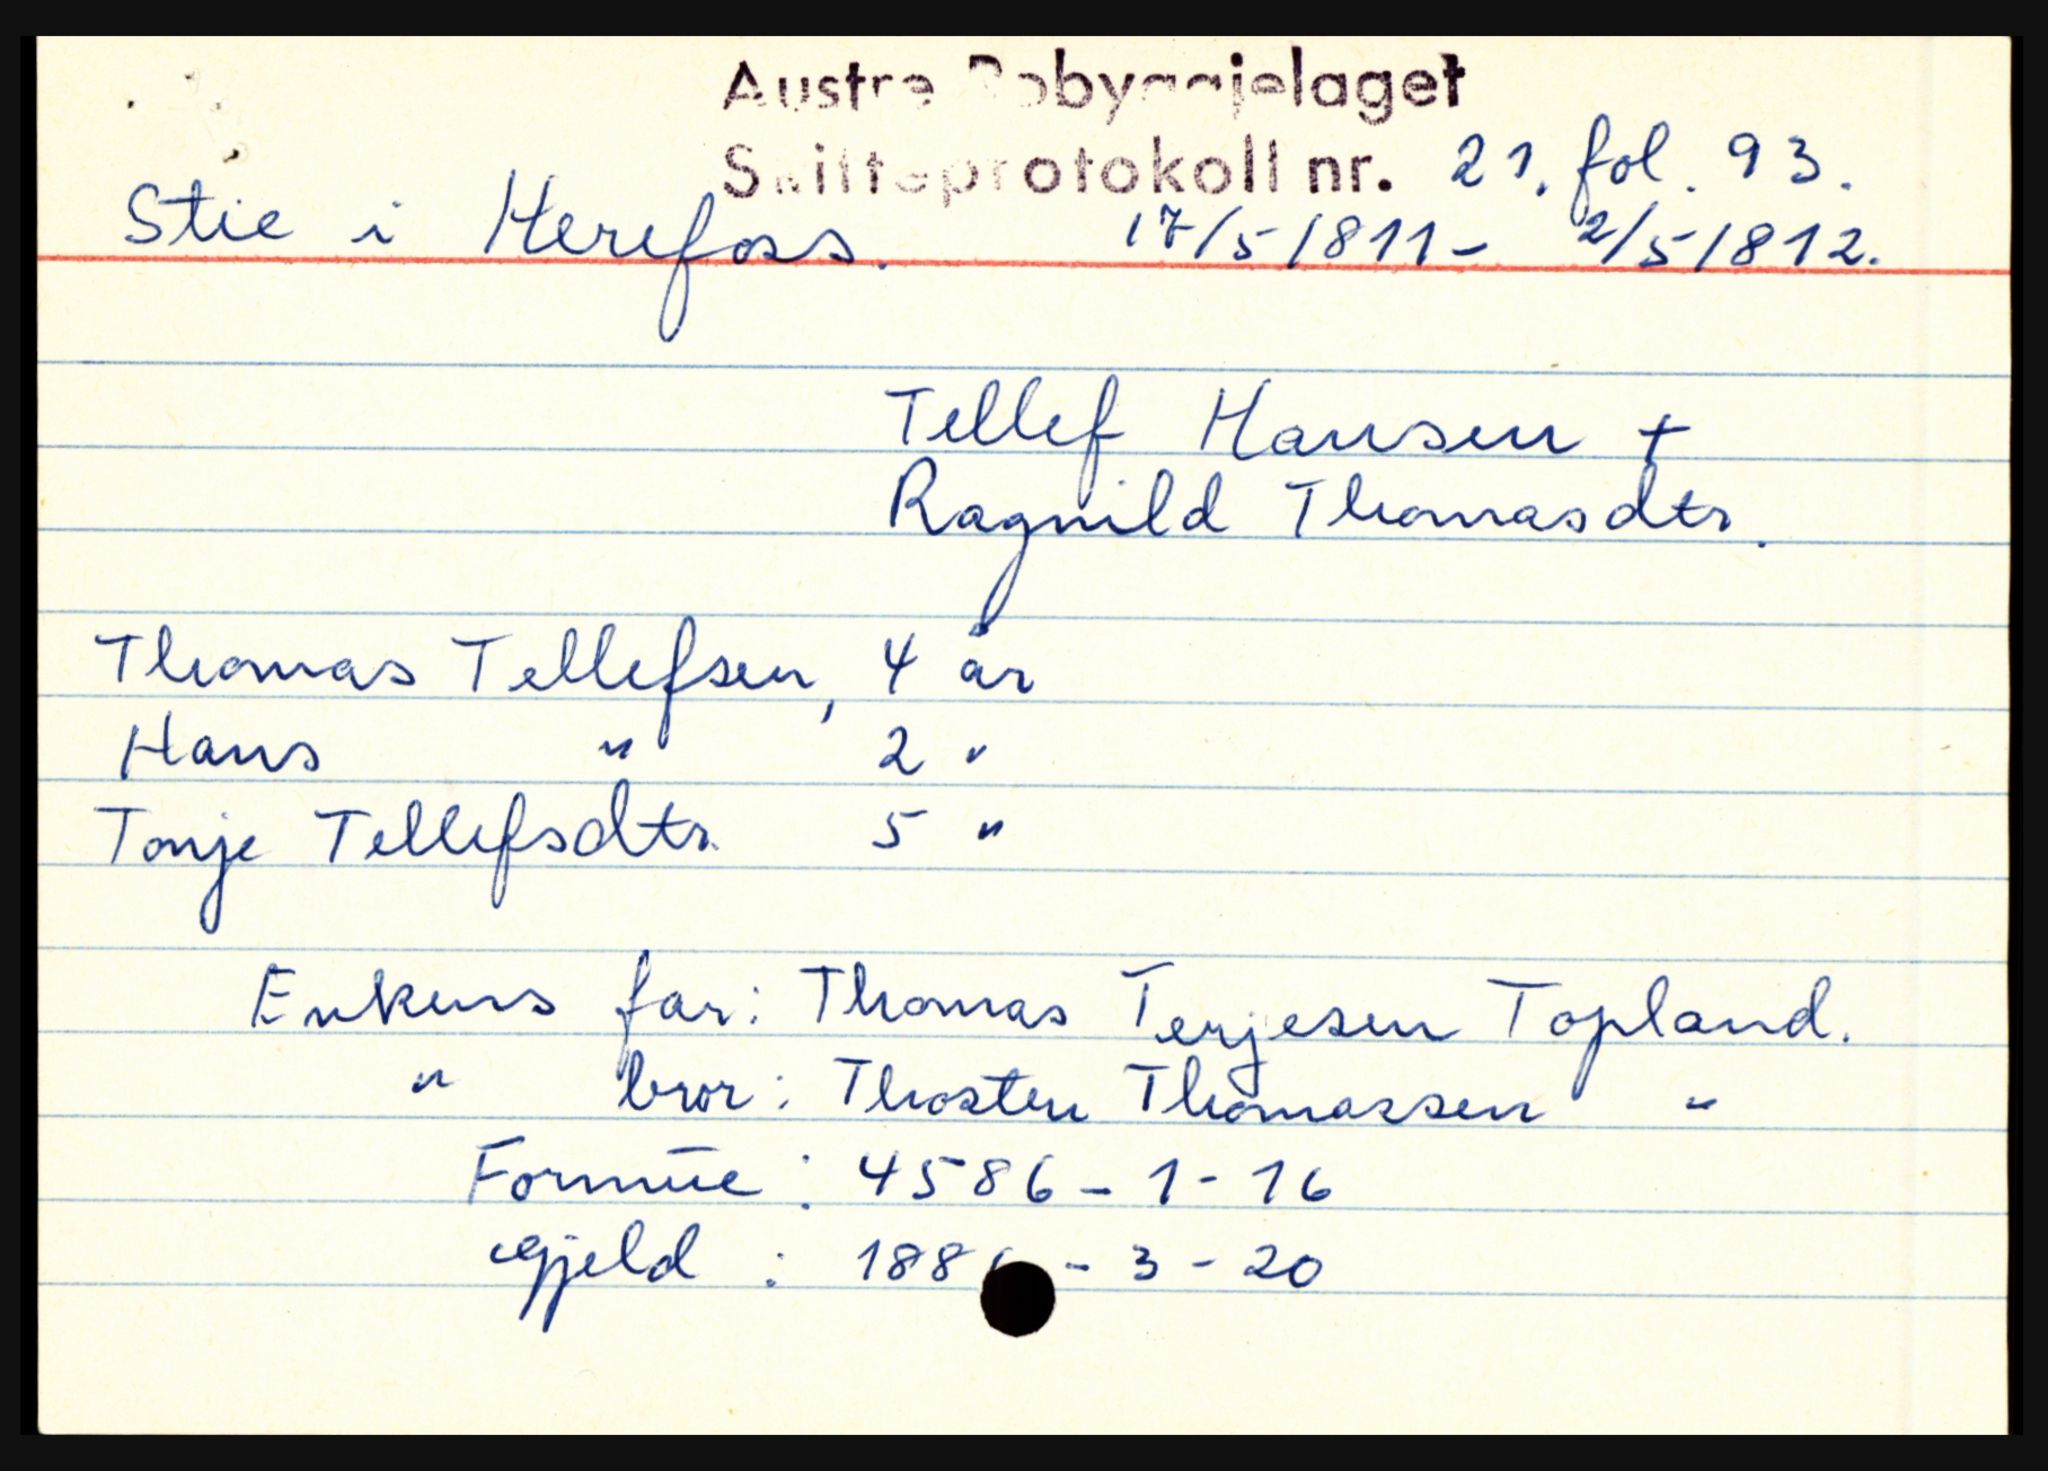 Austre Robyggjelaget
Skifteprotokoll nr. 21. fol. 93.
Stie i Herefoss. 17/5 1811 - 2/5 1812.
Tellef Hansen +
Ragnild Thomasdtr.
Thomas Tellefsen, 4 år
Hans " 2 "
Tonje Tellefsdtr. 5 "
Enkens far: Thomas Terjesen Topland.
" bror: Thosten Thomassen "
Formue : 4586 - 1 - 16
Gjeld : - 3 - 20